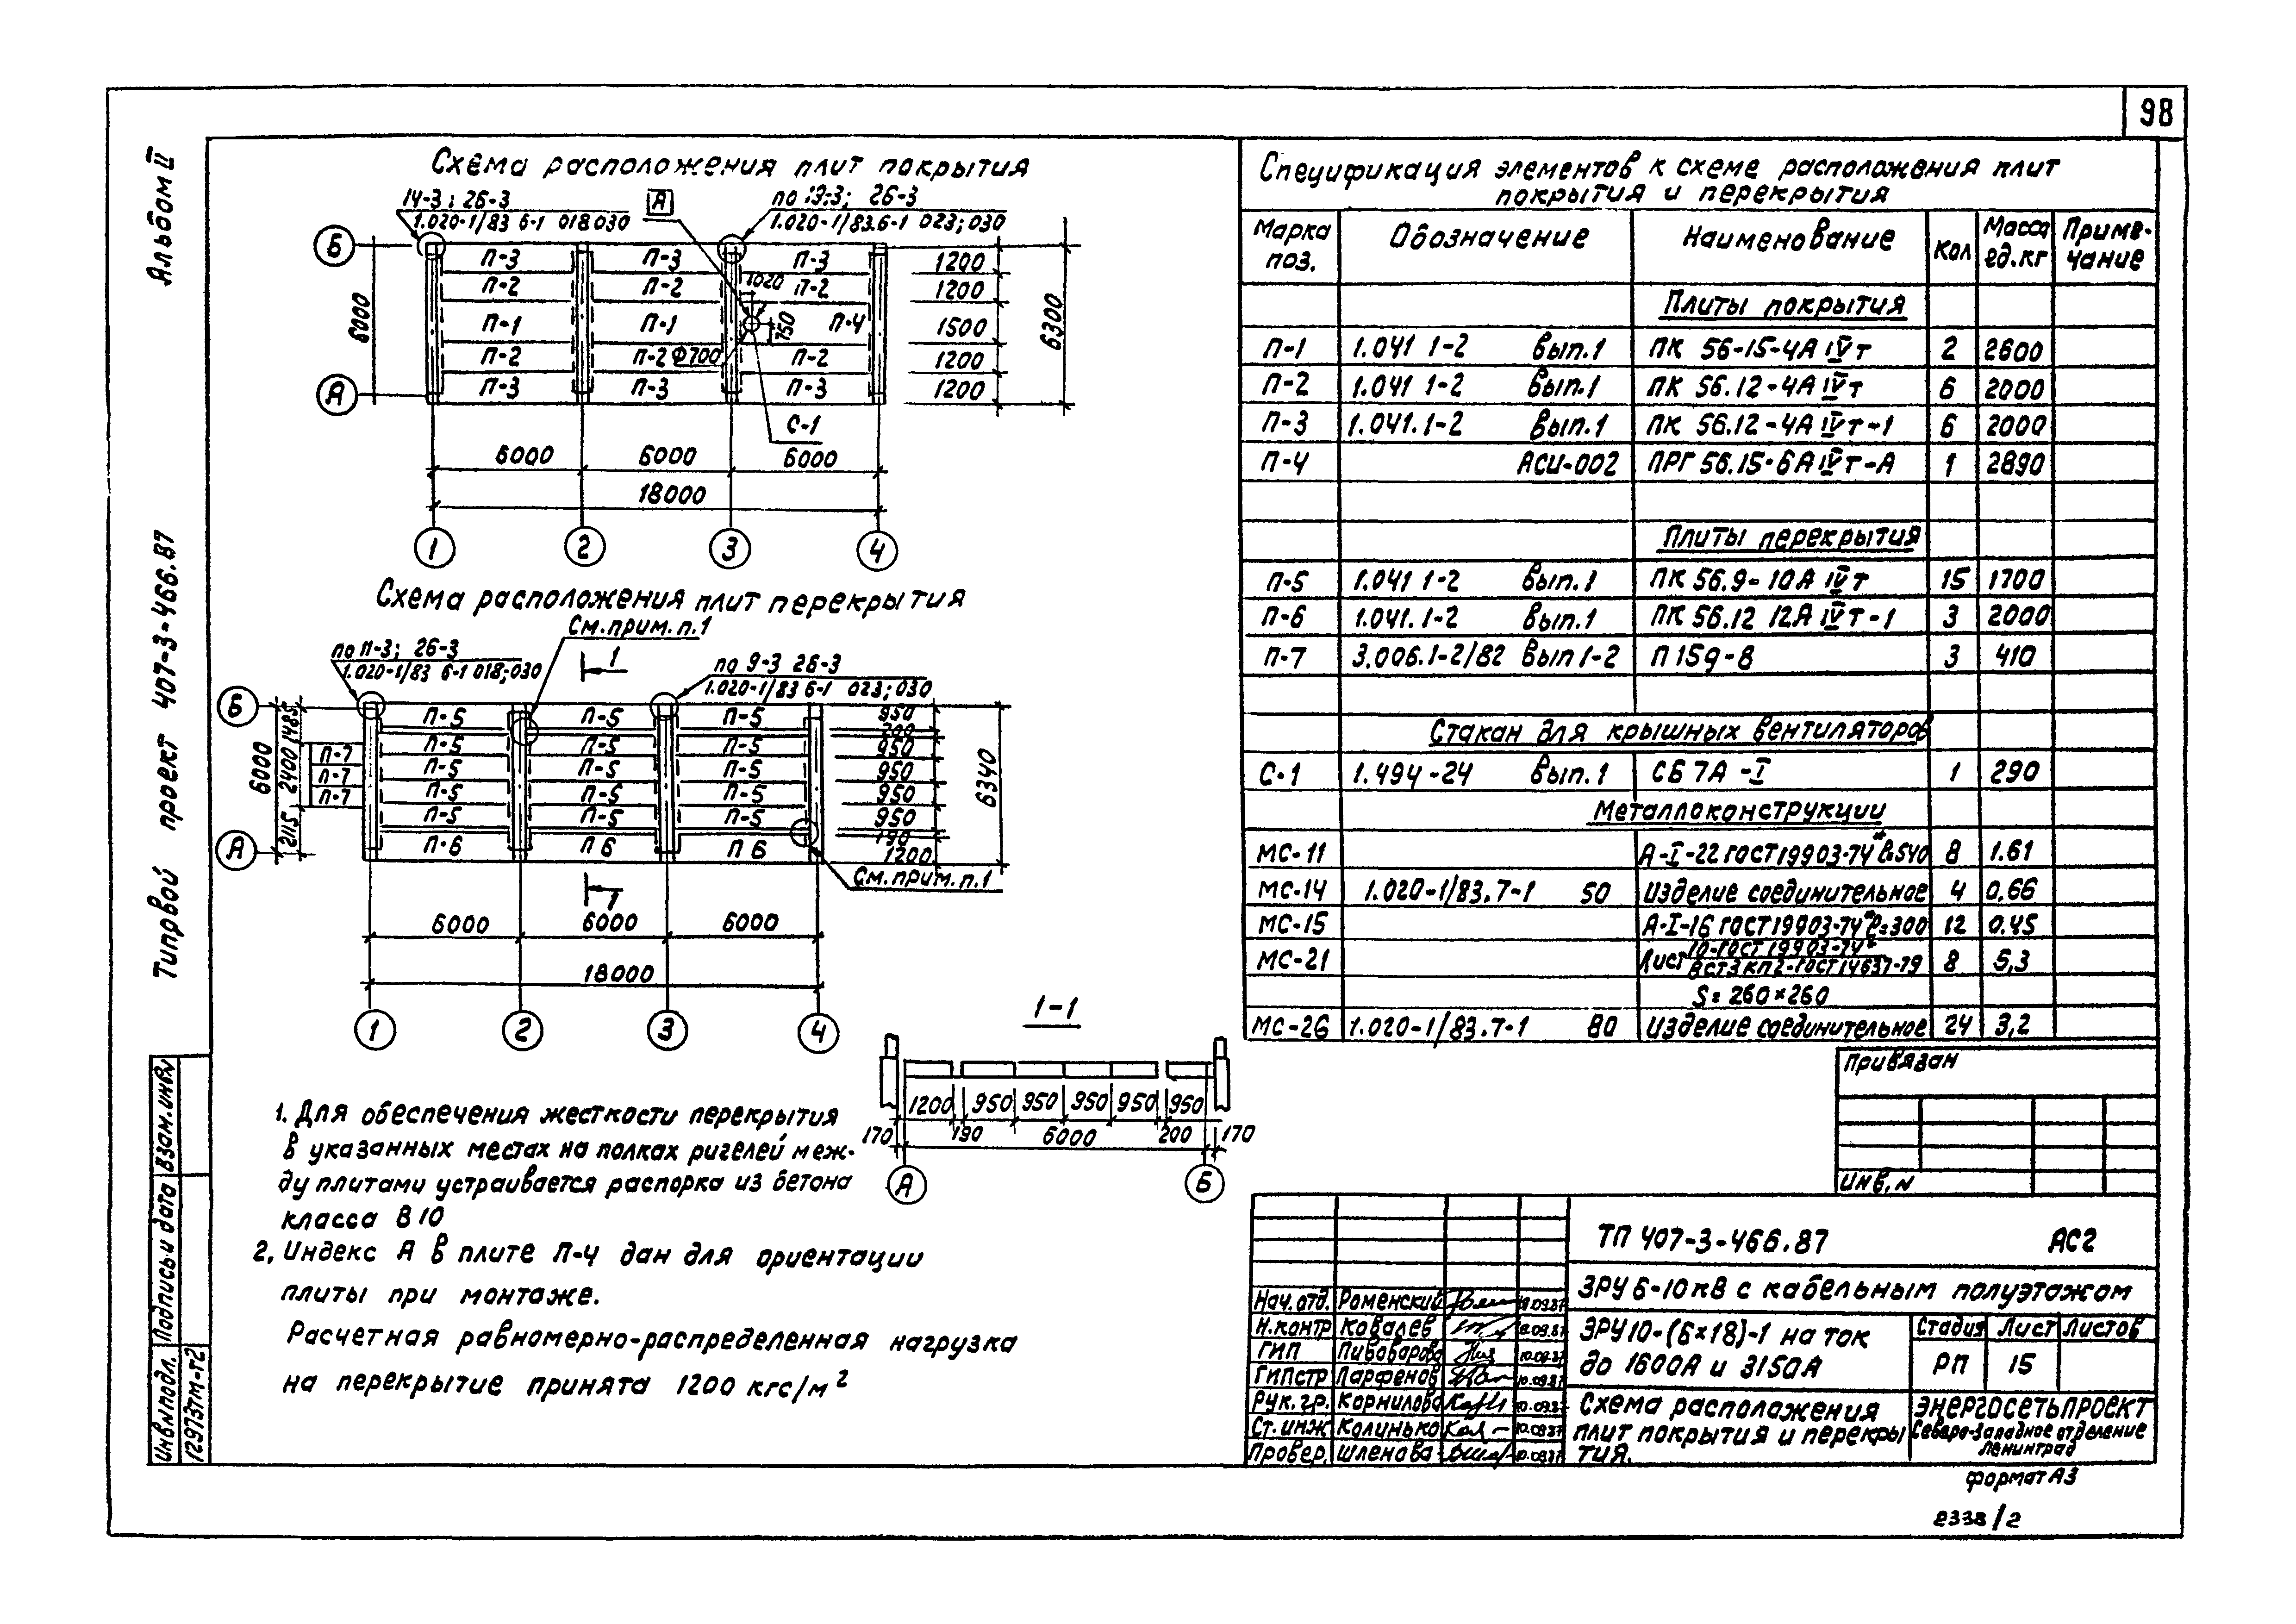 98
Альбом II
Типовой проект 407-3-466.87
Схема расположения плит покрытия
14-3; 26-3
1.020-1/83 6-1 018 030
А
по 19-3; 26-3
1.020-1/83.6-1 023; 030
Б
А
6000
П-3 П-3 П-3
П-2 П-2 1020 П-2
П-1 П-1 750 П-4
П-2 П-2 Ф700 П-2
П-3 П-3 П-3
С-1
1200
1200
1500
1200
1200
6300
6000 6000 6000
18000
1 2 3 4
Схема расположения плит перекрытия
См. прим. п.1
по 11-3; 26-3
1.020-1/83 6-1 018;030
1
по 9-3 26-3
1.020-1/83 6-1 023; 030
Б
А
6000
1485
2400
2115
П-7
П-7
П-7
П-5 П-5 П-5
П-5 П-5 П-5
П-5 П-5 П-5
П-5 П-5 П-5
П-5 П-5 П-5
П-6 П 6 П 6
950
200
950
950
950
950
190
1200
6340
См. прим. п.1
1
6000 6000 6000
18000
1 2 3 4
1-1
1200 950 950 950 950 950
170 190 6000 200 170
А Б
1. Для обеспечения жесткости перекрытия
в указанных местах на полках ригелей меж-
ду плитами устраивается распорка из бетона
класса В10
2. Индекс А в плите П-4 дан для ориентации
плиты при монтаже.
Расчетная равномерно-распределенная нагрузка
на перекрытие принята 1200 кгс/м²
Спецификация элементов к схеме расположения плит
покрытия и перекрытия
Марка поз. Обозначение Наименование Кол Масса ед.кг Приме-чание
Плиты покрытия
П-1 1.041 1-2 Вып.1 ПК 56-15-4А IVт 2 2600
П-2 1.041 1-2 Вып.1 ПК 56.12-4А IVт 6 2000
П-3 1.041.1-2 Вып.1 ПК 56.12-4А IVт-1 6 2000
П-4 АСИ-002 ПРГ 56.15-6А IVт-А 1 2890
Плиты перекрытия
П-5 1.041 1-2 Вып.1 ПК 56.9-10А IVт 15 1700
П-6 1.041.1-2 Вып.1 ПК 56.12 12А IVт-1 3 2000
П-7 3.006.1-2/82 Вып 1-2 П 15g-8 3 410
Стакан для крышных вентиляторов
С-1 1.494-24 Вып.1 СБ 7А-I 1 290
Металлоконструкции
МС-11 А-I-22 ГОСТ 19903-74* ℓ=540 8 1.61
МС-14 1.020-1/83.7-1 50 Изделие соединительное 4 0,66
МС-15 А-I-16 ГОСТ 19903-74* ℓ=300 12 0.45
МС-21 Лист 10-ГОСТ 19903-74* / ВСт3кп2-ГОСТ 14637-79 8 5,3
S=260×260
МС-26 1.020-1/83.7-1 80 Изделие соединительное 24 3,2
Привязан
Инв. N
ТП 407-3-466.87 АС2
ЗРУ 6-10 кВ с кабельным полуэтажом
ЗРУ10-(6×18)-1 на ток
до 1600А и 3150А
Стадия Лист Листов
РП 15
Схема расположения
плит покрытия и перекры
тия.
ЭНЕРГОСЕТЬПРОЕКТ
Северо-Западное отделение
Ленинград
Нач.отд. Роменский 10.09.87
Н.контр Ковалев 10.09.87
ГИП Пивоварова 10.09.87
ГИПстр Парфенов 10.09.87
Рук.гр. Корнилова 10.09.87
Ст.инж Калинько 10.09.87
Провер. Шленова 10.09.87
формат А3
2338/2
Взам.инв.N
Подпись и дата
Инв.N подл.
12973тм-т2